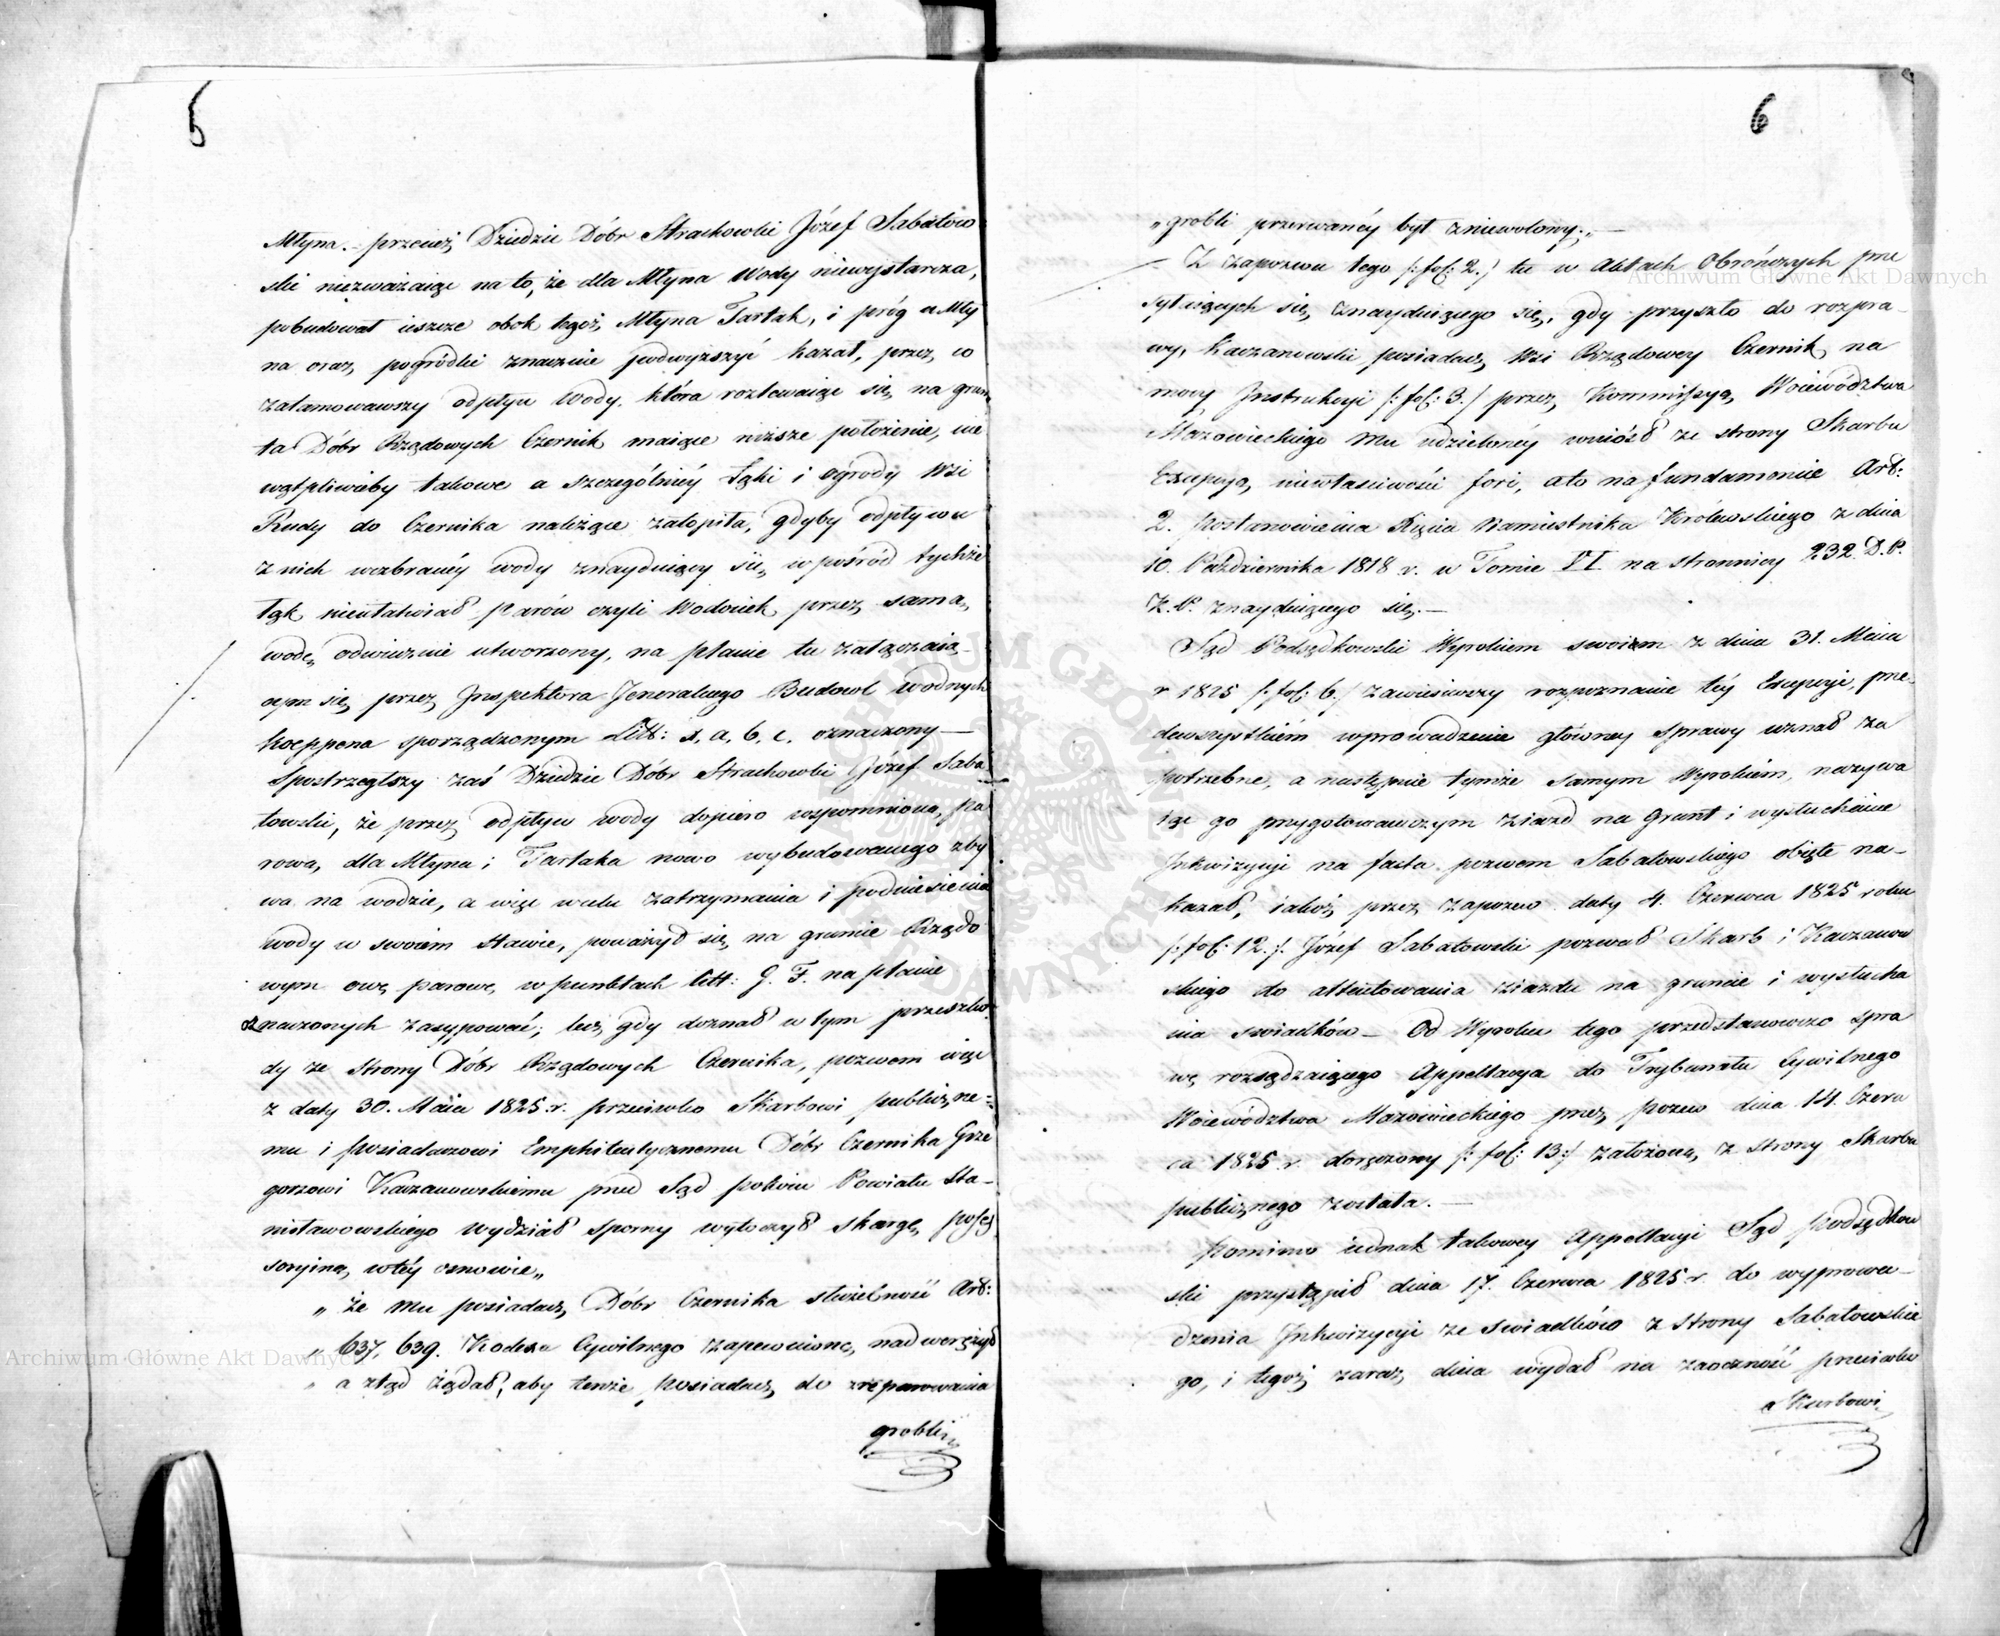 6
Młyna. – przecież Dziedzic Dóbr Strachowki Józef Sabatow
ski niezważaiąc na to, że dla Młyna Wody niewystarcza,
pobudował ieszcze obok tegoż Młyna Tartak, i próg u Mły
na oraz pogródki znacznie podwyższyć kazał, przez co
zatamowawszy odpływ Wody, która rozlewaiąc się na grun
ta Dóbr Rządowych Czernik maiące niższe położenie, nie
wątpliwieby takowe a szczególniéy Łąki i ogrody Wsi
Rudy do Czernika należące zatopiła, gdyby odpływu
z nich wezbranéy wody znayduiący się w pośród tychże
łąk nieułatwiał parów czyli Wodociek przez samą
wodę odwiecznie utworzony, na planie tu załączaią
cym się przez Inspektora Jeneralnego Budowl wodnych
Koeppena sporządzonym Litt: x, a, b, c. oznaczony —
Spostrzegłszy zaś Dziedzic Dóbr Strachowki Józef Saba
towski, że przez odpływ wody dopiero wspomnioną pa
rową, dla Młyna i Tartaka nowo wybudowanego zby
wa na wodzie, a więc w celu zatrzymania i podniesienia
wody w swoiem stawie, poważył się na gruncie Rządo
wym owę parowę w punktach litt: G. F. na planie
oznaczonych zasypować; lecz gdy doznał w tym przeszko
dy ze strony Dóbr Rządowych Czernika, pozwem więc
z daty 30. Maia 1825 r. przeciwko Skarbowi publiczne=
mu i posiadaczowi Emphiteutycznemu Dóbr Czernika Grze
gorzowi Kaczanowskiemu przed Sąd pokoiu Powiatu Sta–
nisławowskiego Wydział sporny wytoczył skargę posses
soryiną, w téy osnowie„
„ że mu posiadacz Dóbr Czernika służebność Art:
„ 637, 639. Kodexa Cywilnego zapewnioną nadwerężył
„ a ztąd żądał, aby tenże posiadacz do zreparowania
grobli„
6
„ grobli przerwanéy był zniewolony;„ —
Z zapozwu tego /: fol: 2. / tu w Aktach Obrończych przy
syłaiących się znayduiącego się, gdy przyszło do rozpra–
wy, Kaczanowski posiadacz Wsi Rządowey Czernik na
mocy Instrukcyi /: fol: 3. / przez Kommissyą Województwa
Mazowieckiego mu udzielonéy wniósł ze strony Skarbu
Excepcyą niewłaściwości fori, a to na fundamencie Art:
2. Postanowienia Xięcia Namiestnika Królewskiego z dnia
10. Października 1818 r. w Tomie VI na stronnicy 232 D. P.
K. P. znayduiącego się. —
Sąd Podsędkowski Wyrokiem swoiem z dnia 31. Maia
r 1825 /: fol: 6. / zawiesiwszy rozpoznanie téy Excepcyi, prze
dewszystkiém wprowadzenie główney sprawy uznał za
potrzebne, a następnie tymże samym Wyrokiem, nazywa
iąc go przygotowawczym ziazd na grunt i wysłuchanie
Inkwizycyi na facta pozwem Sabatowskiego obięte na–
kazał, iakoż przez zapozew daty 4. Czerwca 1825 roku
/: fol: 12. /. Józef Sabatowski pozwał Skarb i Kaczanow
skiego do attentowania ziazdu na gruncie i wysłucha
nia swiadków – Od Wyroku tego przedstanowczo spra
wę rozsądzaiącego Appellacya do Trybunału Cywilnego
Woiewództwa Mazowieckiego przez pozew dnia 14. Czerw
ca 1825 r. doręczony /: fol: 13:/ założoną z strony Skarbu
publicznego została. —
Pomimo iednak takowey Appellacyi Sąd Podsędkow
ski przystąpił dnia 17. Czerwca 1825 r. do wyprowa–
dzenia Inkwizycyi ze swiadków z strony Sabatowskie
go, i tegoż zaraz dnia wydał na zaoczność przeciwko
Skarbowi
Archiwum Główne Akt Dawnych
Archiwum Główne Akt Dawnych
ARCHIWUM GŁÓWNE AKT DAWNYCH